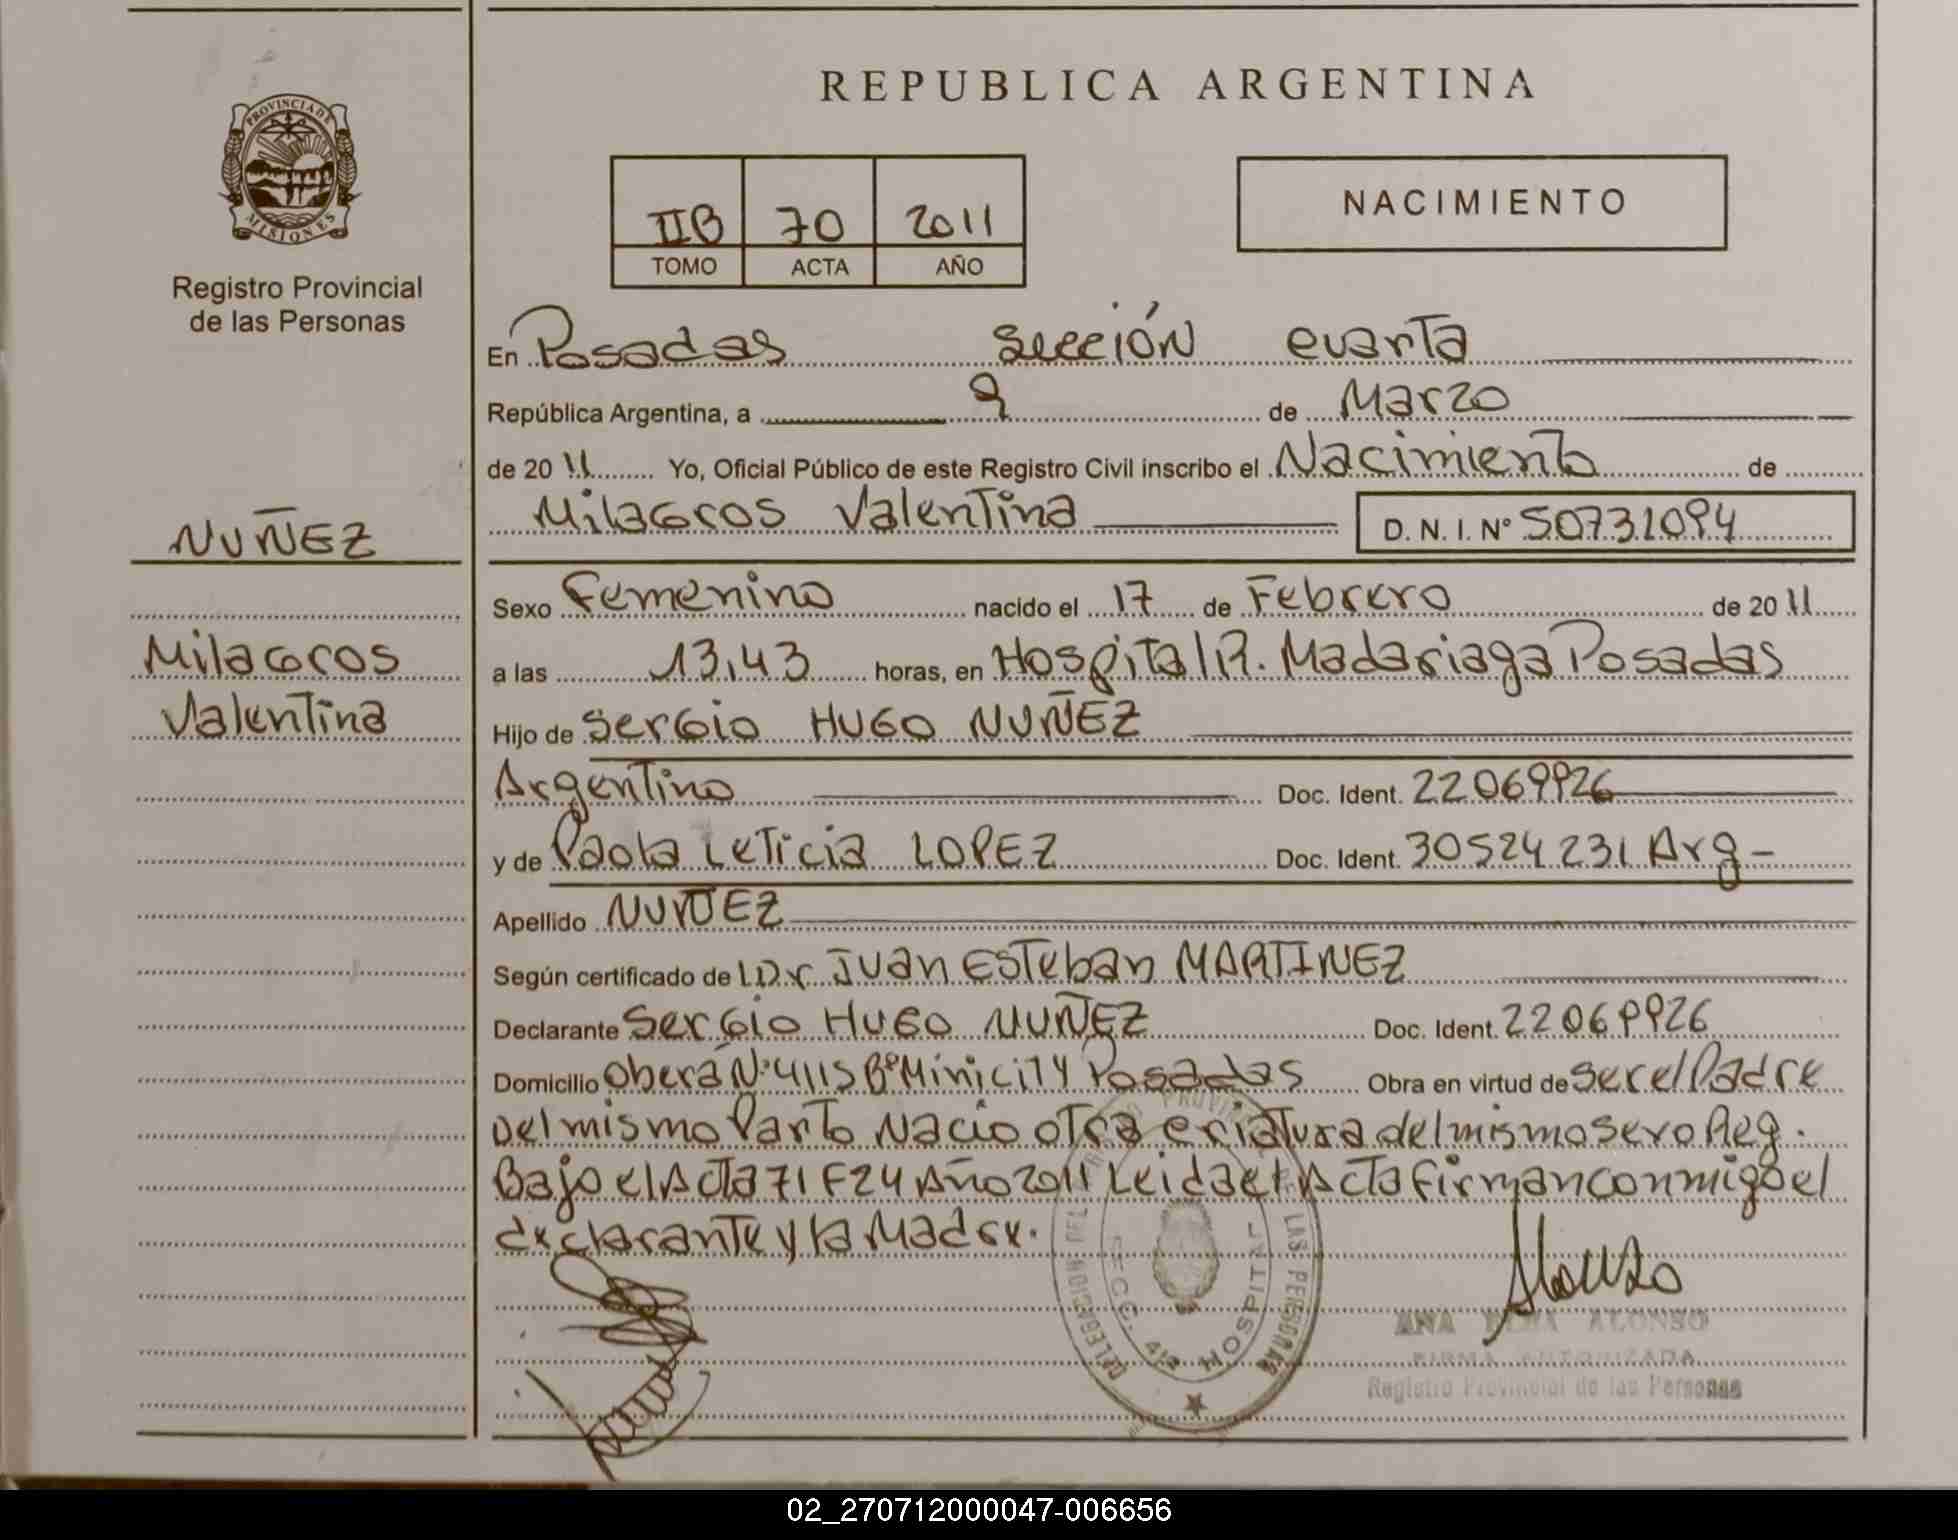 REPUBLICA ARGENTINA
PROVINCIA DE MISIONES
Registro Provincial
de las Personas
IIB 70 2011
TOMO ACTA AÑO
NACIMIENTO
En Posadas Sección cuarta
República Argentina, a 9 de Marzo
de 2011 Yo, Oficial Público de este Registro Civil inscribo el Nacimiento de
Milagros Valentina D. N. I. Nº 50731094
NUÑEZ
Milagros
Valentina
Sexo Femenino nacido el 17 de Febrero de 2011
a las 13,43 horas, en Hospital R. Madariaga Posadas
Hijo de Sergio HUGO NUÑEZ
Argentino Doc. Ident. 22069926
y de Paola Leticia LOPEZ Doc. Ident. 30524231 Arg-
Apellido NUÑEZ
Según certificado de Dr. Juan Esteban MARTINEZ
Declarante Sergio Hugo NUÑEZ Doc. Ident. 22069926
Domicilio Oberá Nº 4115 Bº Minicity Posadas Obra en virtud de ser el Padre
Del mismo Parto Nacio otra criatura del mismo sexo Reg.
Bajo el Acta 71 F24 Año 2011 Leida el Acta firman conmigo el
declarante y la Madre.
DELEGACION DEL REGISTRO PROVINCIAL DE LAS PERSONAS
SECC. 4ta HOSPITAL
ANA ALONSO
FIRMA AUTORIZADA
Registro Provincial de las Personas
02_270712000047-006656